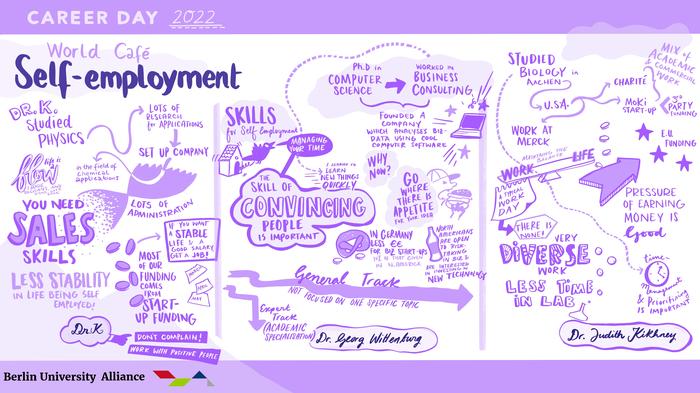 CAREER DAY 2022
World Café
Self-employment
DR. K.
Studied
PHYSICS
LOTS OF
RESEARCH
for APPLICATIONS
SET UP COMPANY
in the field of
chemical
applications
life is
flow
LOTS OF
ADMINISTRATION
YOU NEED
SALES
SKILLS
IF YOU WANT
A STABLE
LIFE & A
GOOD SALARY
GET A JOB!
MOST
OF OUR
FUNDING
COMES
FROM
START-
UP FUNDING
LESS STABILITY
IN LIFE BEING SELF
EMPLOYED!
Dr. K
DON'T COMPLAIN!
WORK WITH POSITIVE PEOPLE
SKILLS
for Self Employment
MANAGING
YOUR TIME
I LEARNED TO
LEARN
NEW THINGS
QUICKLY
THE
SKILL OF
CONVINCING
PEOPLE
IS IMPORTANT
Ph.D in
COMPUTER
SCIENCE
WORKED IN
BUSINESS
CONSULTING
FOUNDED A
COMPANY
WHICH ANALYSES BIZ-
DATA USING COOL
COMPUTER SOFTWARE
WHY
NOW?
GO
WHERE
THERE IS
APPETITE
FOR YOUR IDEA
IN GERMANY
LESS €€
FOR BIZ START-UPS
NORTH
AMERICANS
ARE OPEN
TO RISK
TAKING
IN BIZ &
NEW TECHNOLOGY
General Track
NOT FOCUSED ON ONE SPECIFIC TOPIC
Expert
Track
(ACADEMIC
SPECIALISATION)
Dr. Georg Wittenburg
STUDIED
BIOLOGY IN
AACHEN
U.S.A.
CHARITÉ
MoKi
START-UP
MIX of
ACADEMIC
& COMMERCIAL
WORK
PARTY
FUNDING
E.U.
FUNDING
WORK AT
MERCK
MAINTAINING THE
BALANCE
WORK
LIFE
A TYPICAL
WORK
DAY
THERE IS
NONE!
PRESSURE
OF EARNING
MONEY IS
good
VERY
DIVERSE
WORK
LESS TIME
IN LAB
time
Management
& Prioritizing
IS IMPORTANT
Dr. Judith Kikhney
Berlin University Alliance